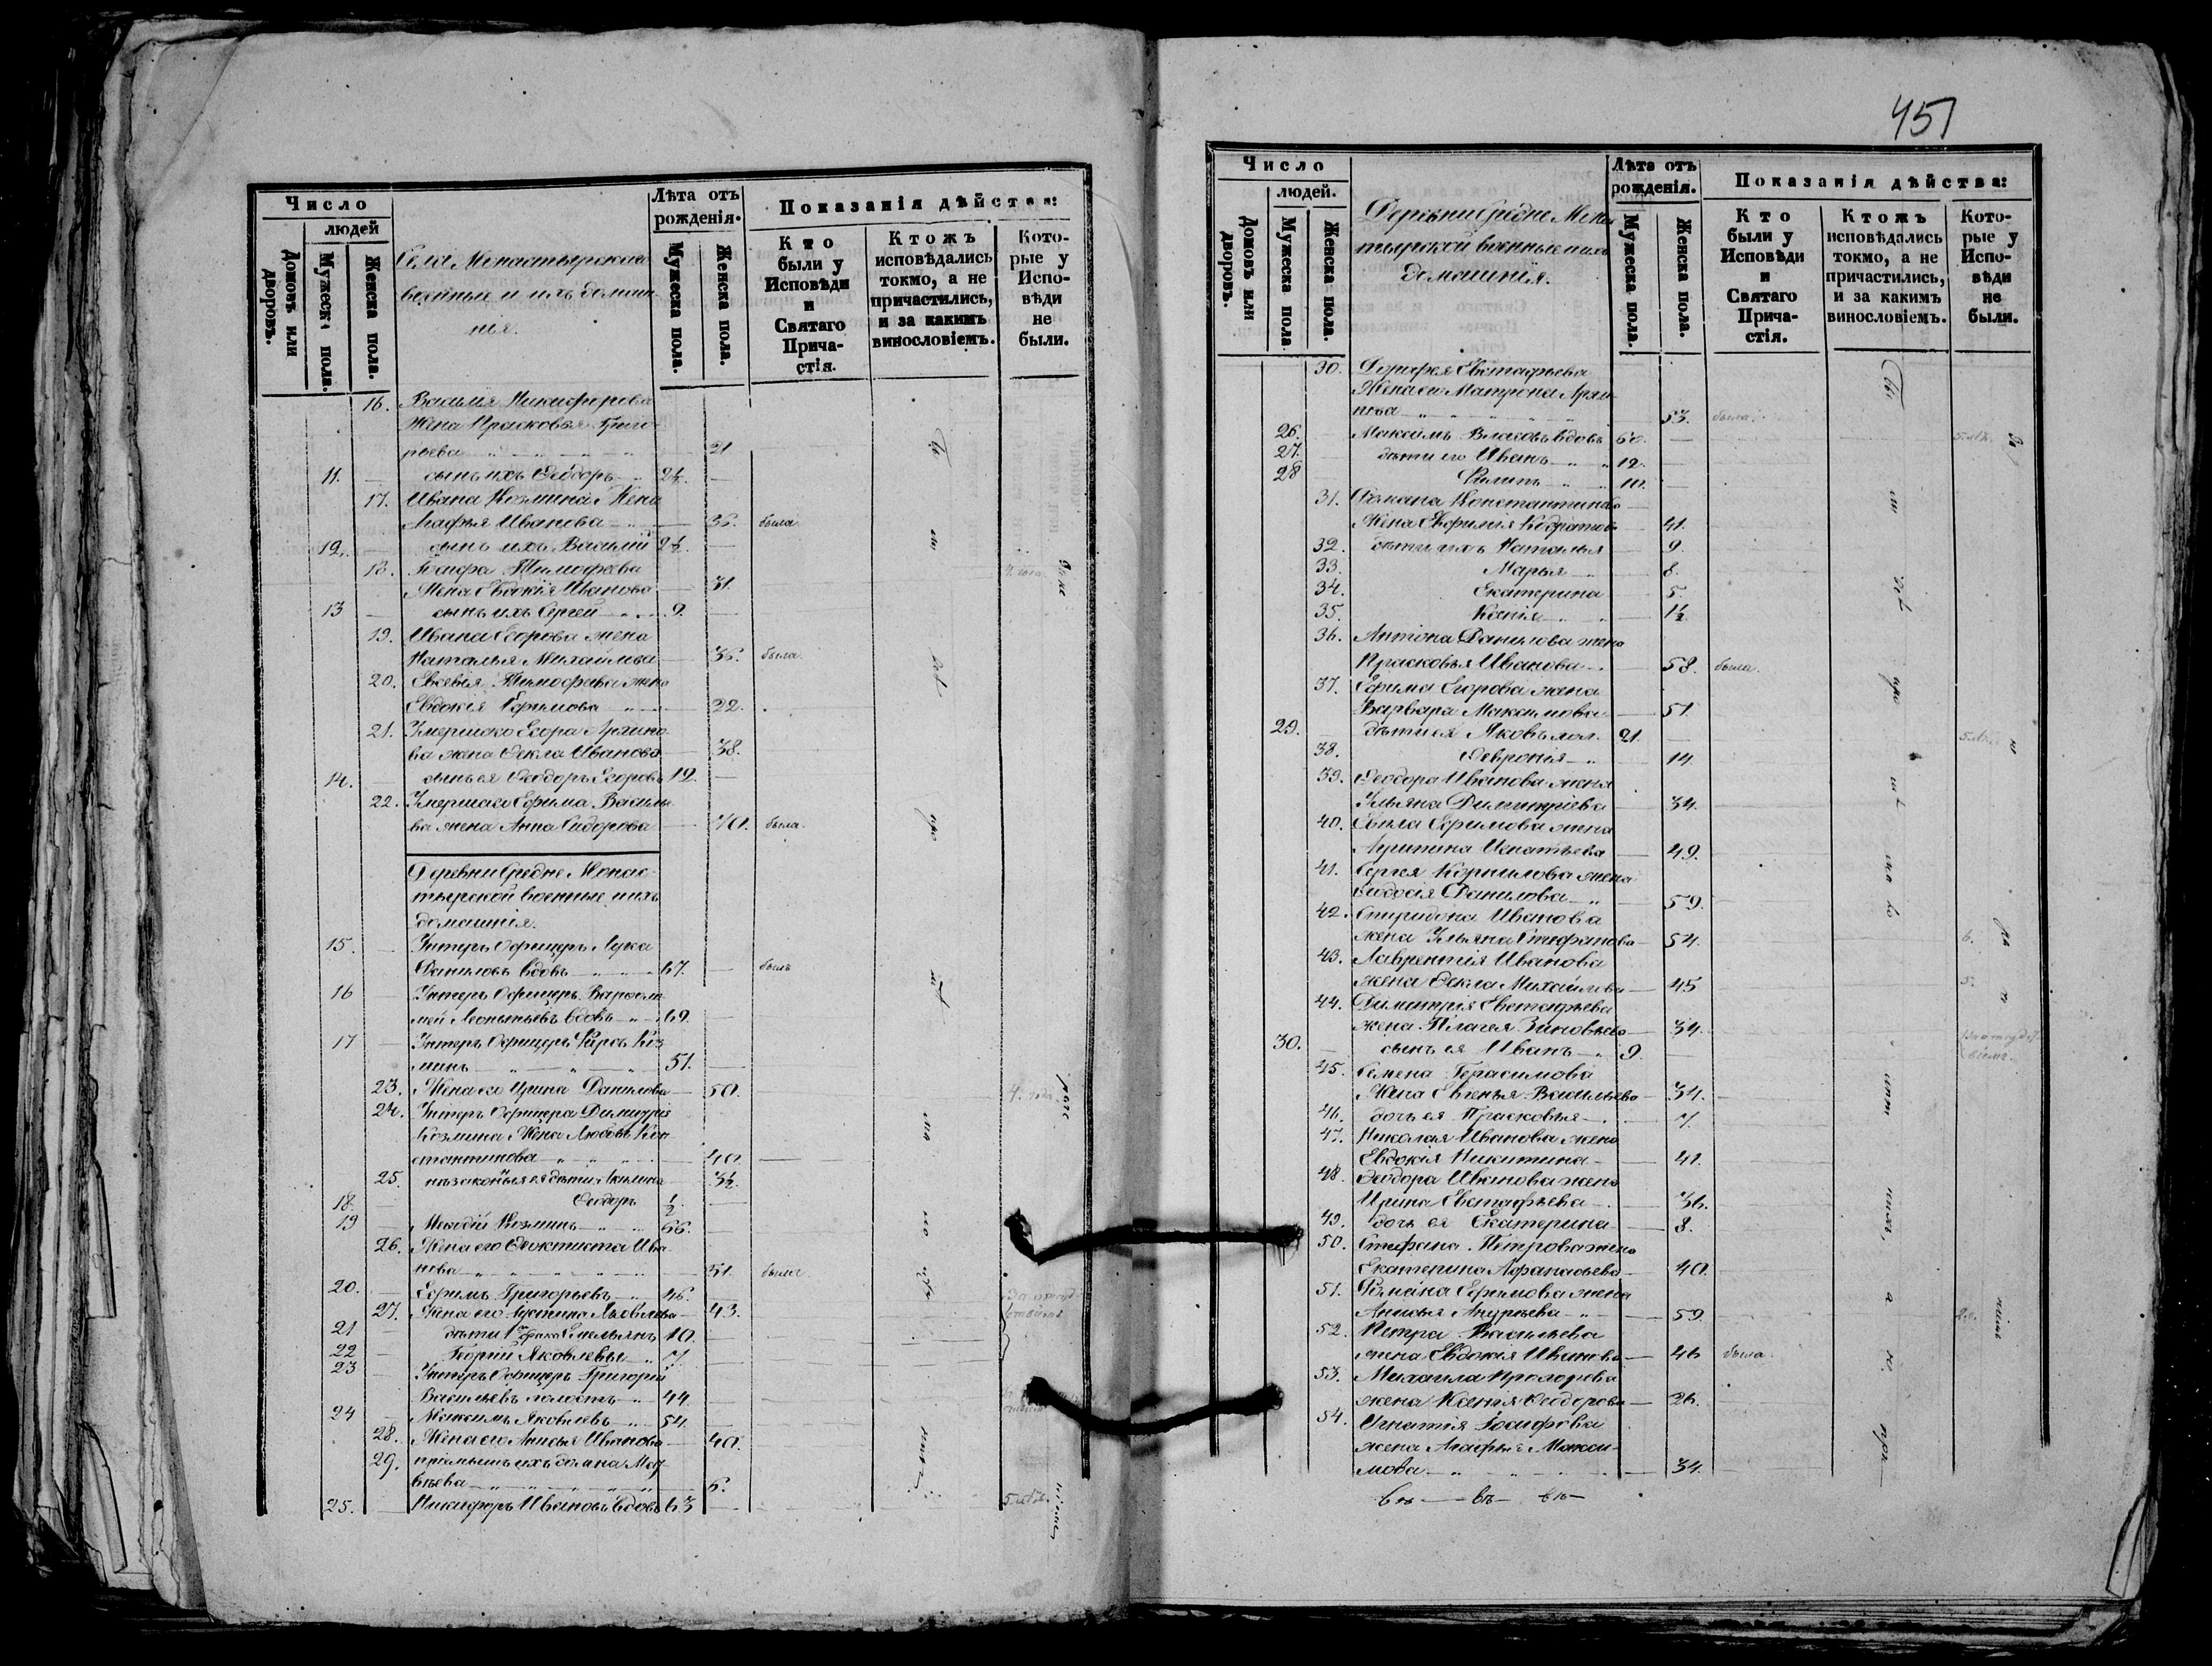 Число
людей
Домовъ или дворовъ.
Мужеска пола.
Женска пола.
Села Монастырскаго
военные и ихъ домаш-
нія.
Лѣта отъ рожденія.
Мужеска пола.
Женска пола.
Показанія дѣйства:
Кто были у Исповѣди и Святаго Прича-стія.
Ктожъ исповѣдались токмо, а не причастились, и за какимъ винословіемъ.
Кото-рые у Испо-вѣди не были.
16. Василія Никифорова
жена Прасковья Григо-
рьева 21
11. сынъ ихъ Ѳеодоръ 2½.
17. Ивана Козмина жена
Агафья Иванова 36. была
12. сынъ ихъ Василій 2½.
18. Тимофеева
жена Евдокія Иванова 31.
13 сынъ ихъ Сергей 9.
19. Ивана Егорова жена
Наталья Михайлова 36. была.
20. Евсевія Тимофеева жена
Евдокія Ефимова 22.
21. Умершаго Егора Архипо-
ва жена Ѳекла Иванова 38.
14. сынъ ея Ѳеодоръ Егоровъ 12.
22. Умершаго Ефима Василье-
ва жена Анна Сидорова 70. была.
Деревни Средне Монас-
тырской военные и ихъ
домашнія.
15. Унтеръ Офицеръ Лука
Даниловъ вдовъ 67. былъ
16 Унтеръ Офицеръ Варѳоло-
мей Леонтьевъ вдовъ 69.
17 Унтеръ Офицеръ Фирсъ Коз-
минъ 51.
23. Жена его Ирина Данилова 50. 4. года
24. Унтеръ Офицера Димитрія
Козмина жена Любовь Кон-
стантинова 40.
25. незаконныя ея дѣти Акилина 3½.
18. Ѳеодоръ ½.
19 Меѳодій Козминъ 66.
26. Жена его Ѳеоктиста Ива-
нова 51. была.
20. Ефимъ Григорьевъ 46. За отсуд-
ствіемъ
27. Жена его Іустина Яковлева 43.
21 дѣти 1го брака Емельянъ 10.
22 Георгій Яковлевы 7.
23 Унтеръ Офицеръ Григорій
Васильевъ холостъ 44.
24 Максимъ Яковлевъ 54.
28. Жена его Анисья Иванова 40.
29. пріемышъ ихъ Домна Мат-
вѣева 6.
25. Никифоръ Ивановъ вдовъ 63 5 лѣтъ.
451
Число
людей.
Домовъ или дворовъ.
Мужеска пола.
Женска пола.
Деревни Средне Монас-
тырской военные и ихъ
домашнія.
Лѣта отъ рожденія.
Мужеска пола.
Женска пола.
Показанія дѣйства:
Кто были у Исповѣди и Святаго Прича-стія.
Ктожъ исповѣдались токмо, а не причастились, и за какимъ винословіемъ.
Кото-рые у Испо-вѣди не были.
30. Дорофея Евстафьева
Жена его Матрона
53. была.
26. Максимъ Власовъ вдовъ 60. 5 лѣтъ
27. дѣти его Иванъ 12.
28 Филипъ 10.
31. Романа Константинова
жена Евфимія Кодратова 41.
32. дѣти ихъ Наталья 9.
33. Марья 8.
34. Екатерина 5.
35. 1½
36. Антона Данилова жена
Прасковья Иванова 58. была.
37. Ефима Егорова жена
Варвара Максимова 51.
29. дѣти ея Яковъ хол. 21. 5 лѣт.
38. Ѳевронія 14
39. Ѳеодора Иванова жена
Ульяна Димитріева 34.
40. Ефимова жена
Агрипина Игнатьева 49.
41. Сергея Корнилова жена
Ѳедосія Данилова 59.
42. Спиридона Иванова
жена Ульяна Стефанова 54. 6.
43. Лаврентія Иванова
жена Ѳекла Михайлова 45 5.
44. Димитрія Евстафьева
жена Пелагея Зиновьева 34. За отсудст-
віемъ.
30. сынъ ея Иванъ 9.
45. Семена Герасимова
Жена Евгенья Васильева 34.
46. дочь ея Прасковья 7.
47. Николая Иванова жена
Евдокія Никитина 41.
48. Ѳеодора Иванова жена
Ирина Евстафьева 36.
49. дочь ея Екатерина 8.
50. Стефана Петрова жена
Екатерина Афанасьева 40.
51. Романа Ефимова жена
Анисья Андреева 59.
52. Петра Васильева
жена Евдокія Иванова 46 была.
53. Михаила Прохорова
жена Ксенія Ѳеодорова 26.
54. Игнатія Іосифова
жена Агафья Макси-
мова 34.